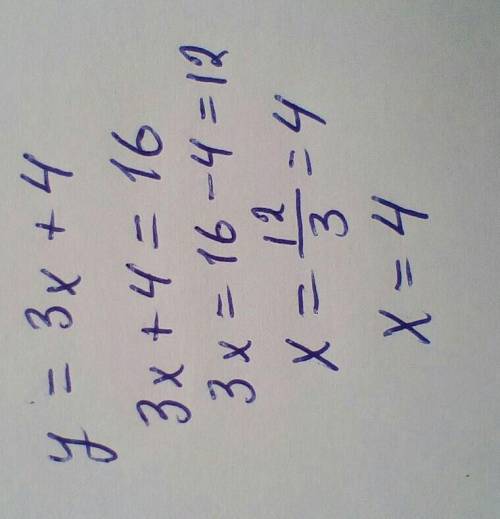 y = 3x + 4
3x + 4 = 16
3x = 16 - 4 = 12
x = 12/3 = 4
x = 4